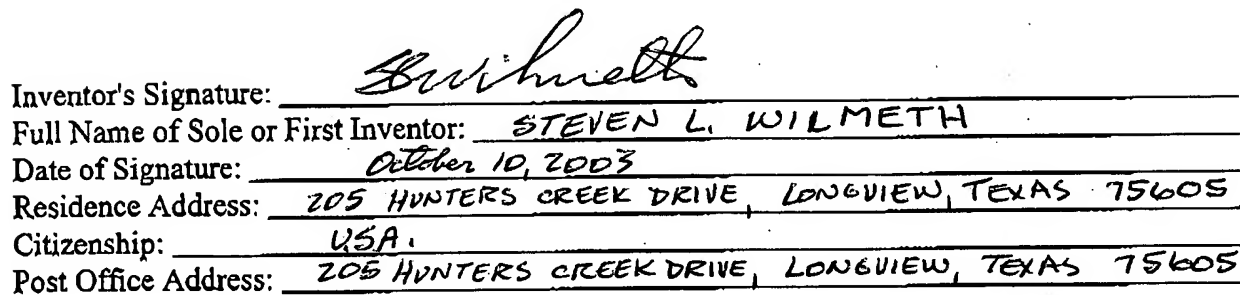 Inventor's Signature: SWilmeth
Full Name of Sole or First Inventor: STEVEN L. WILMETH
Date of Signature: October 10, 2003
Residence Address: 205 HUNTERS CREEK DRIVE, LONGVIEW, TEXAS 75605
Citizenship: USA.
Post Office Address: 205 HUNTERS CREEK DRIVE, LONGVIEW, TEXAS 75605